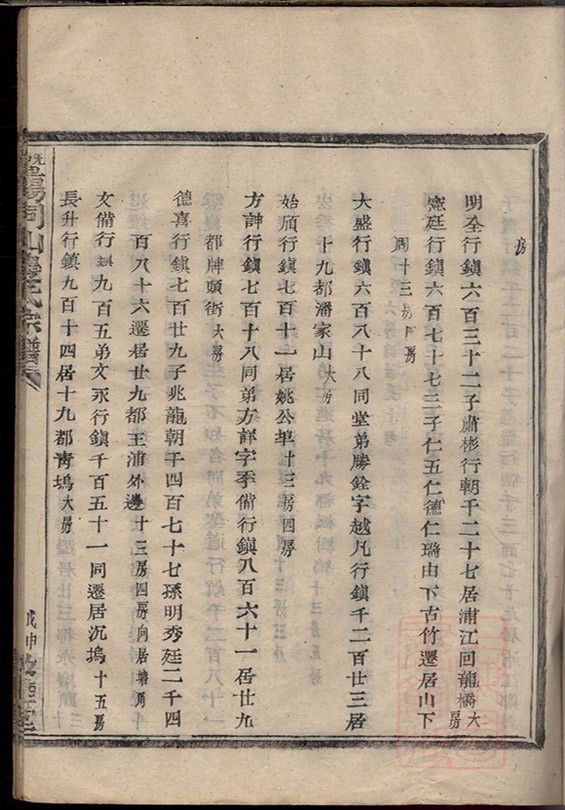 房
明全行鎮六百三十二子肅彬行朝千二十七居浦江回龍橋大房
憲廷行鎮六百七十七二子仁五仁德仁璐由下古竹遷居山下
周十三房四房
大盛行鎮六百八十八同堂弟勝銓字越凡行鎮千二百廿三居
十九都潘家山大房
始頎行鎮七百十一居姚公埠十三房四房
方訷行鎮七百十八同弟方詳字季備行鎮八百六十一居廿九
都牌頭街大房
德喜行鎮七百廿九子兆龍朝千四百七十七孫明秀廷二千四
百八十六遷居廿九都王浦外邊十三房四房向居塘角
文備行鎮九百五弟文永行鎮千百五十一同遷居沉塢十五房
長升行鎮九百十四居十九都青塢大房
暨陽同山氏宗譜
戊申